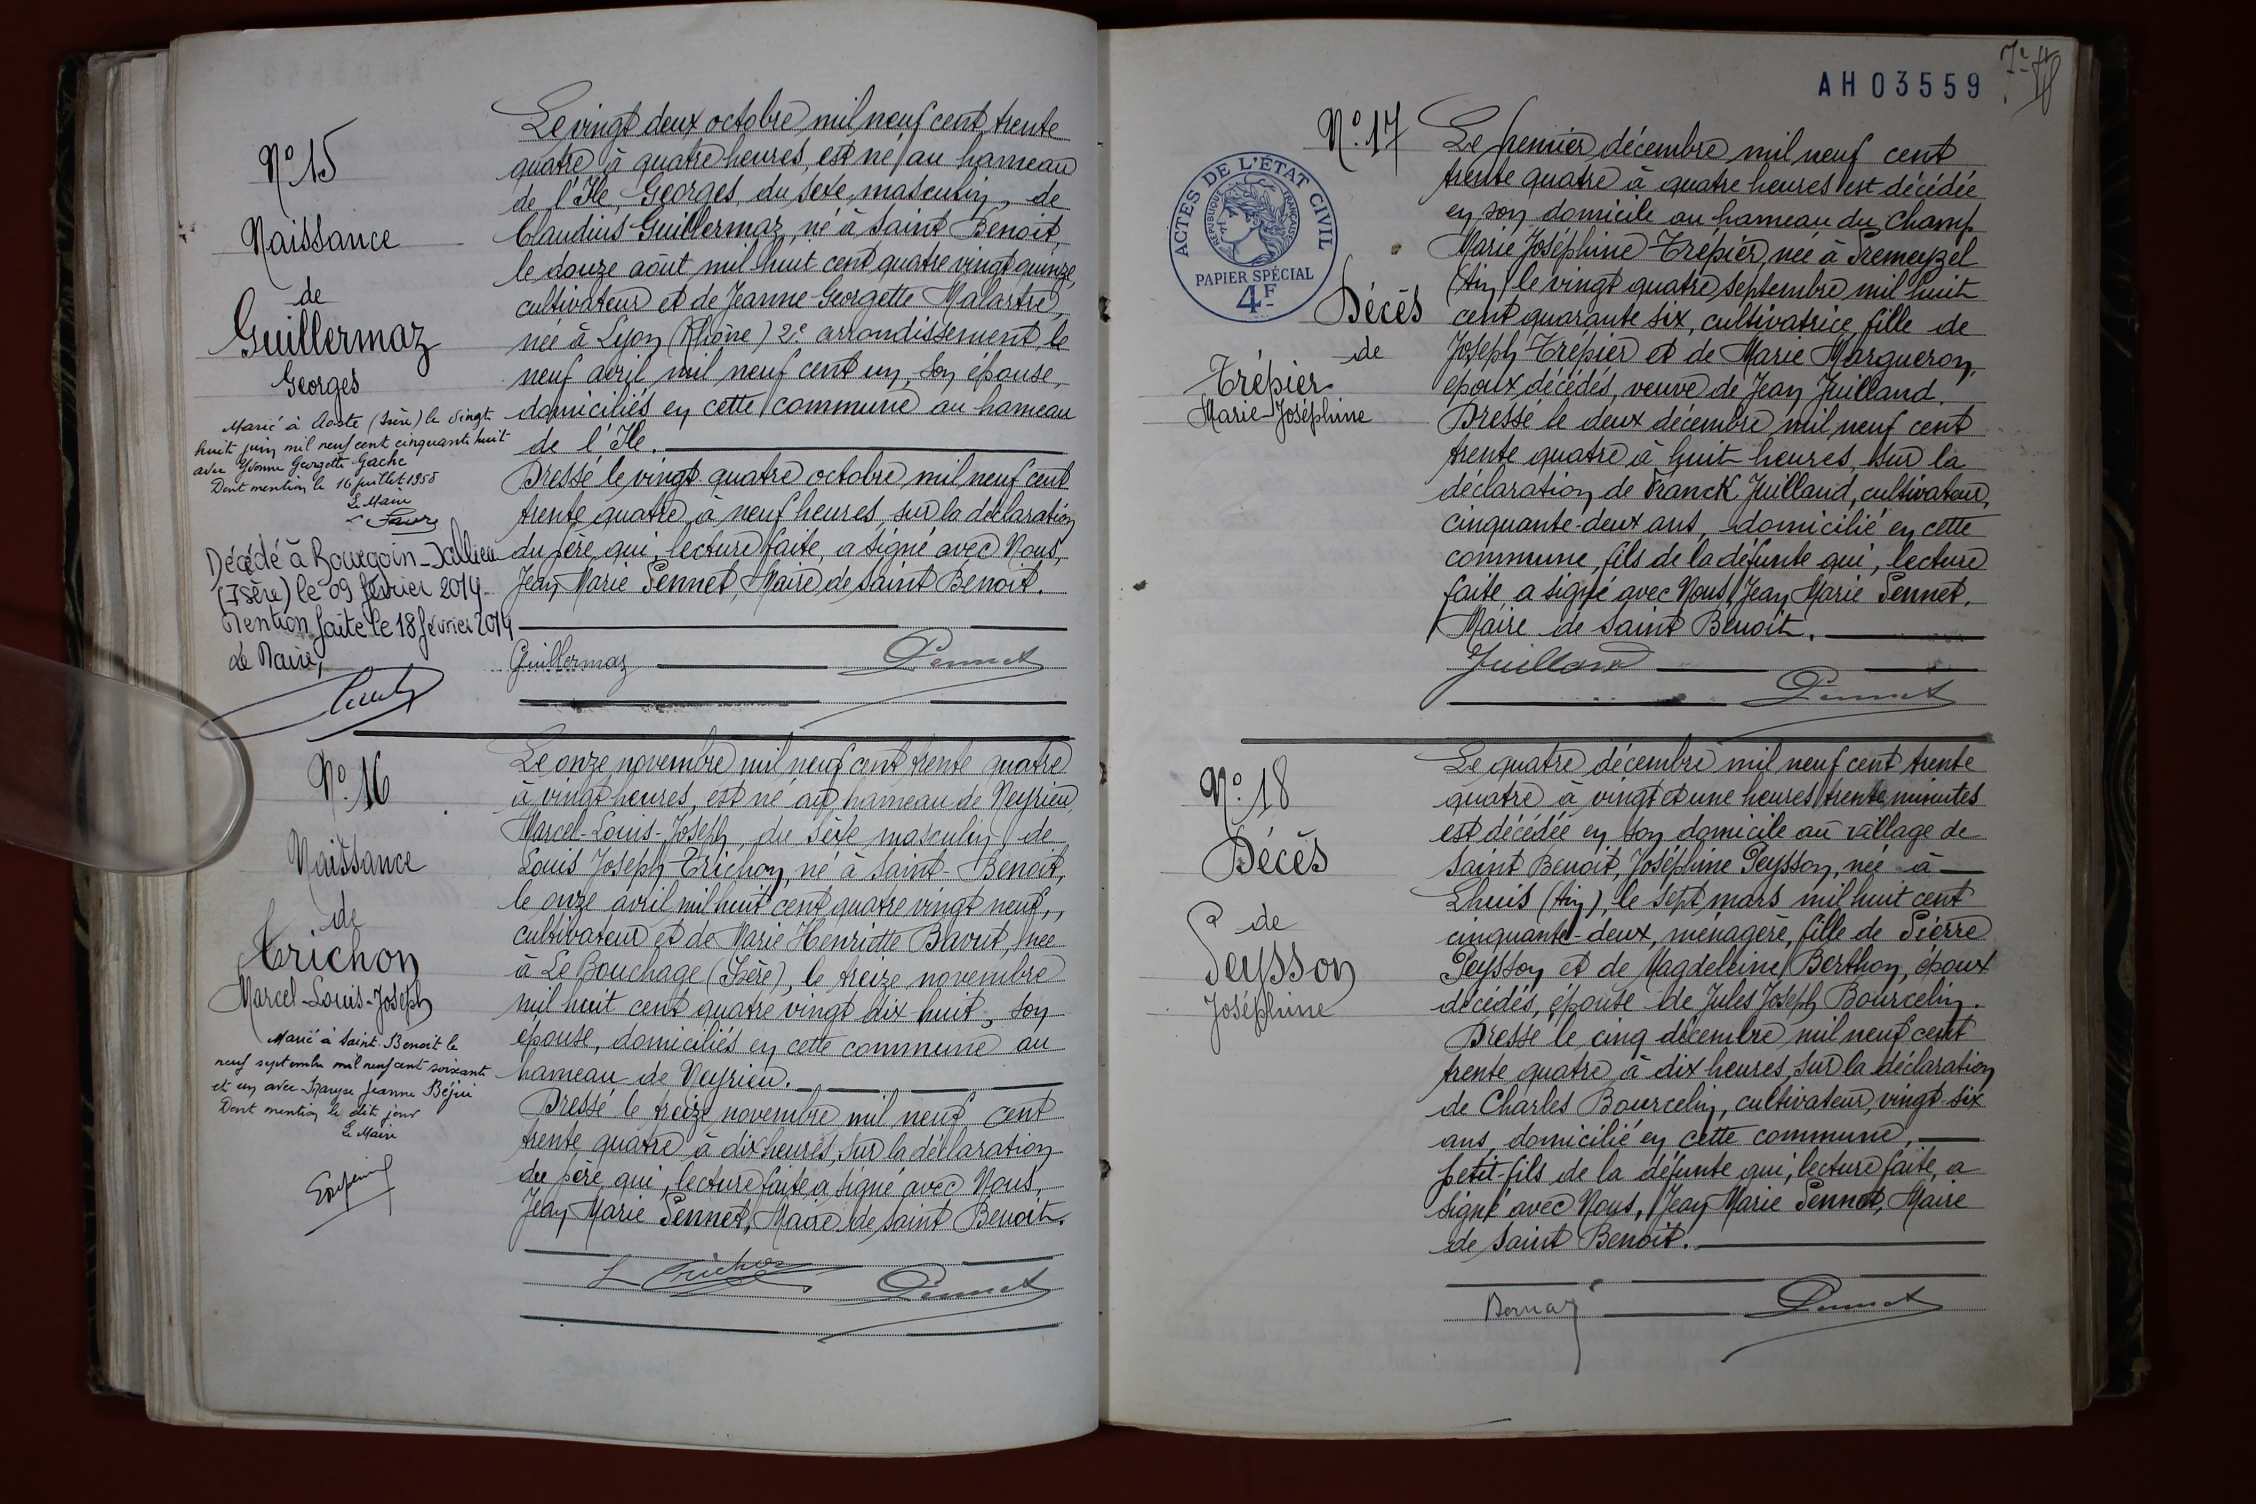 N° 15
Naissance
de
Guillermaz
Georges
Marié à Aoste (Isère) le vingt
huit juin mil neuf cent cinquante huit
avec Yvonne Georgette Gache
Dont mention le 16 juillet 1958
Le Maire
Décédé à Bourgoin-Jallieu
(Isère) le 09 février 2014
Mention faite le 18 février 2014
Le Maire,
Le vingt deux octobre mil neuf cent trente
quatre à quatre heures, est né au hameau
de l'Ile, Georges, du sexe masculin, de
Claudius Guillermaz, né à Saint Benoit,
le douze août mil huit cent quatre vingt quinze,
cultivateur et de Jeanne-Georgette Malartre,
née à Lyon (Rhône) 2e arrondissement le
neuf avril mil neuf cent un, son épouse,
domiciliés en cette commune au hameau
de l'Ile.
Dressé le vingt quatre octobre mil neuf cent
trente quatre à neuf heures, sur la déclaration
du père qui, lecture faite, a signé avec Nous,
Jean Marie Pennet, Maire de Saint Benoit.
Guillermaz Pennet
N° 16
Naissance
de
Trichon
Marcel-Louis-Joseph
Marié à Saint-Benoit le
neuf septembre mil neuf cent soixante
et un avec Maryse Jeanne Béjui
Dont mention le dit jour
Le Maire
Le onze novembre mil neuf cent trente quatre
à vingt heures, est né au hameau de Veyrieu,
Marcel-Louis-Joseph, du sexe masculin, de
Louis Joseph Trichon, né à Saint-Benoit,
le onze avril mil huit cent quatre vingt neuf,
cultivateur et de Marie Henriette Bavut, née
à Le Bouchage (Isère), le treize novembre
mil huit cent quatre vingt dix huit, son
épouse, domiciliés en cette commune au
hameau de Veyrieu.
Dressé le treize novembre mil neuf cent
trente quatre à dix heures, sur la déclaration
du père qui, lecture faite a signé avec Nous,
Jean Marie Pennet, Maire de Saint Benoit.
L Trichon Pennet
AH 03559
ACTES DE L'ÉTAT CIVIL
RÉPUBLIQUE FRANÇAISE
PAPIER SPÉCIAL
4F
N° 17
Décès
de
Trépier
Marie-Joséphine
Le premier décembre mil neuf cent
trente quatre à quatre heures est décédée
en son domicile au hameau du Champ
Marie Joséphine Trépier, née à Premeyzel
(Ain) le vingt quatre septembre mil huit
cent quarante six, cultivatrice, fille de
Joseph Trépier et de Marie Margueron,
époux décédés, veuve de Jean Juilland.
Dressé le deux décembre mil neuf cent
trente quatre à huit heures, sur la
déclaration de Franck Juilland, cultivateur,
cinquante-deux ans, domicilié en cette
commune, fils de la défunte qui, lecture
faite, a signé avec Nous, Jean Marie Pennet,
Maire de Saint Benoit.
Juilland
Pennet
N° 18
Décès
de
Peysson
Joséphine
Le quatre décembre mil neuf cent trente
quatre à vingt et une heures trente minutes
est décédée en son domicile au village de
Saint Benoit, Joséphine Peysson, née à
Lhuis (Ain), le sept mars mil huit cent
cinquante-deux, ménagère, fille de Pierre
Peysson et de Magdeleine Berthon, époux
décédés, épouse de Jules Joseph Bourcelin.
Dressé le cinq décembre mil neuf cent
trente quatre, à dix heures, sur la déclaration
de Charles Bourcelin, cultivateur, vingt-six
ans, domicilié en cette commune,
petit-fils de la défunte qui, lecture faite, a
signé avec Nous, Jean Marie Pennet, Maire
de Saint Benoit.
Pennet